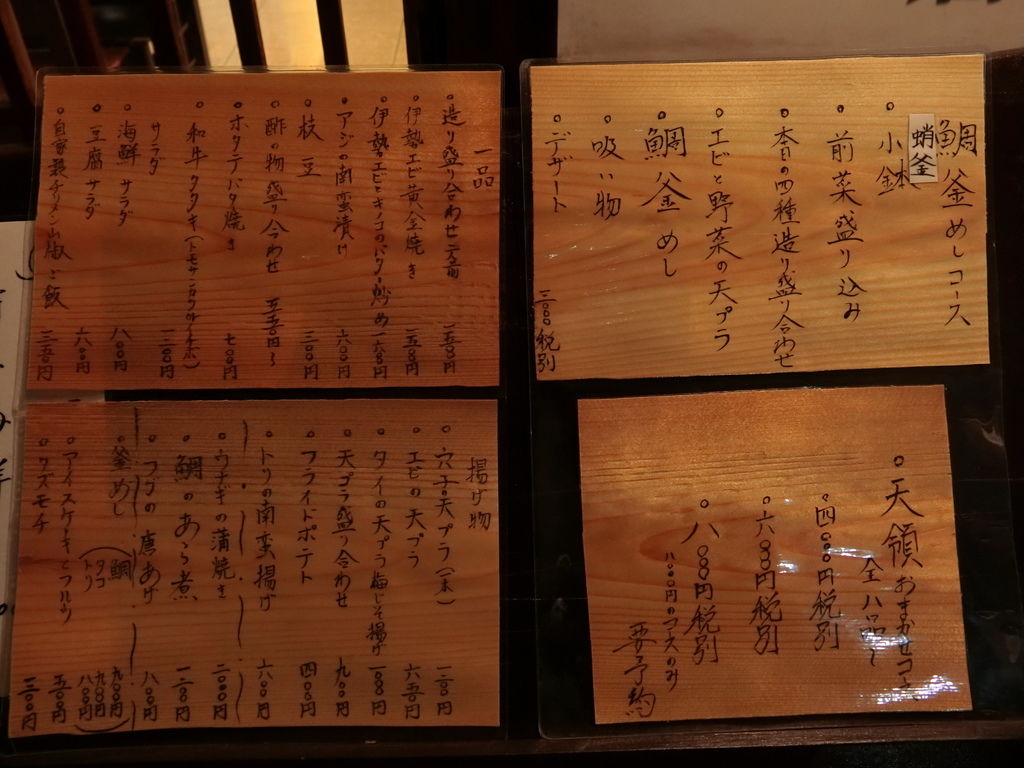 鯛釜めしコース
蛸釜
小鉢
前菜盛り込み
本日の四種造り盛り合わせ
エビと野菜の天プラ
鯛釜めし
吸い物
デザート
三〇〇〇税別
一品
造り盛り合わせ二人前
伊勢エビ黄金焼き
伊勢エビとキノコのバター炒め 一六〇〇円
アジの南蛮漬け 六〇〇円
枝豆 三〇〇円
酢の物盛り合わせ 五五〇円〜
ホタテバター焼き 七〇〇円
和牛タタキ
サラダ
海鮮サラダ 八〇〇円
豆腐サラダ 六〇〇円
自家製チリメン山椒ご飯 三五〇円
天領おまかせコース
全八品〜
四〇〇〇円税別
六〇〇〇円税別
八〇〇〇円税別
八〇〇〇円のコースのみ
要予約
揚げ物
穴子の天プラ(一本) 一二〇〇円
エビの天プラ 六五〇円
タイの天プラ梅しそ揚げ 一一〇〇円
天プラ盛り合わせ 九〇〇円
フライドポテト 四〇〇円
トリの南蛮揚げ 六〇〇円
ウナギの蒲焼き 二〇〇〇円
鯛のあら煮 一二〇〇円
フグの唐あげ 八〇〇円
釜めし
鯛 九〇〇円
タコ 九〇〇円
トリ 八〇〇円
アイスケーキとフルーツ 五〇〇円
クズモチ 三〇〇円